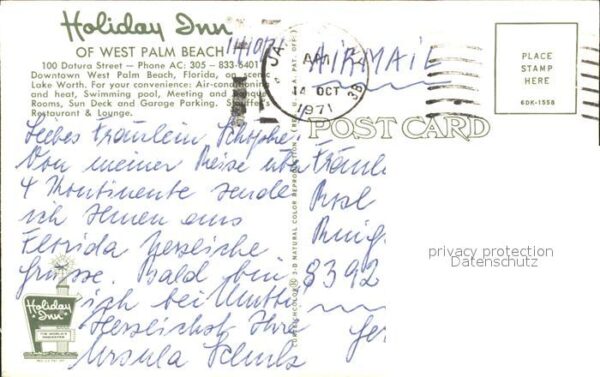 Holiday Inn
OF WEST PALM BEACH
100 Datura Street — Phone AC: 305 — 833-6401
Downtown West Palm Beach, Florida, on scenic
Lake Worth. For your convenience: Air-conditioning
and heat, Swimming pool, Meeting and
Rooms, Sun Deck and Garage Parking.
Restaurant & Lounge.
14/10/71
AIRMAIL
PM
14 OCT
1971
PLACE
STAMP
HERE
6DK-1558
POST CARD
Liebes Fräulein
Von meiner Reise über
4 Kontinente sende
ich Ihnen aus
Florida herzliche
Grüsse. Bald bin
ich bei Mutti
Herzlichst Ihre
Ursula Schulz
Fräul
Rosl
Ring
8392
Ger
3-D NATURAL COLOR REPRODUCTION
privacy protection
Datenschutz
Holiday
Inn